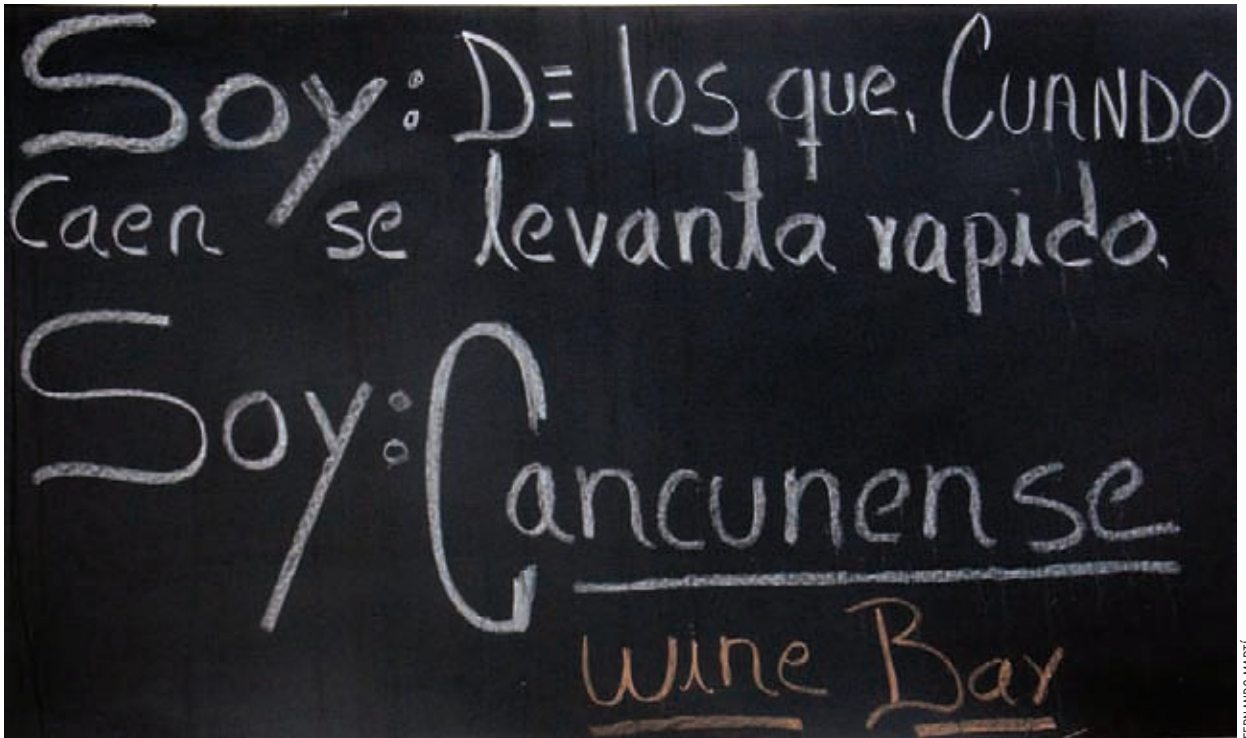 Soy: DE los que, CUANDO
Caen se levanta rapido.
Soy: Cancunense
Wine Bar
FERNANDO MARTÍ